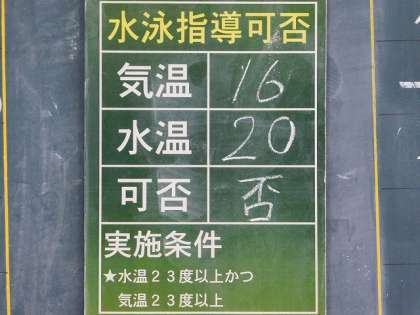 水泳指導可否
気温 16
水温 20
可否 否
実施条件
★水温２３度以上かつ
気温２３度以上